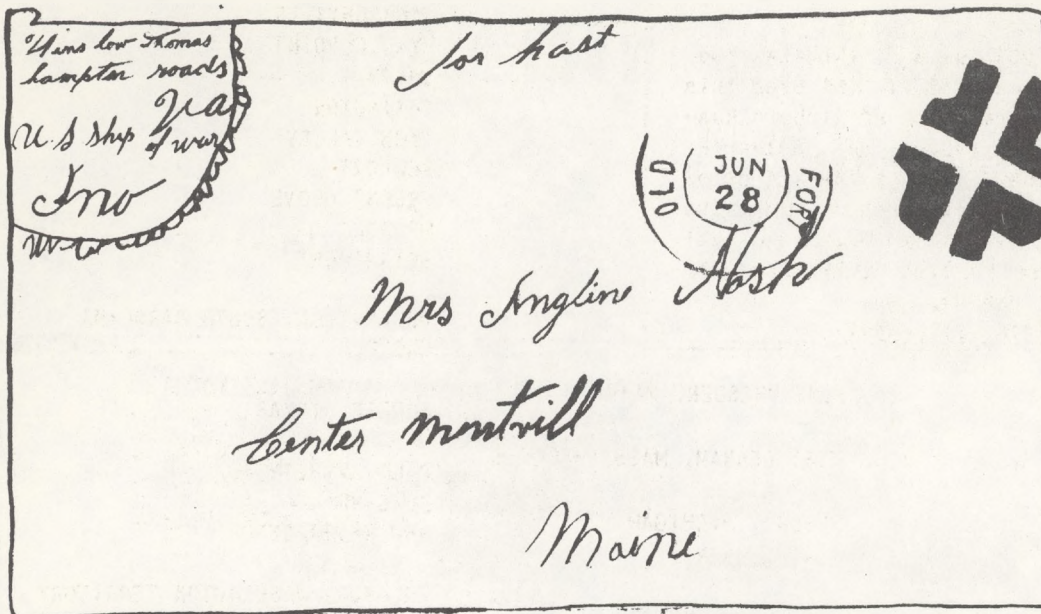 Winslow Thomas
hampton roads
Va
U.S Ship of war
Ino
for hast
OLD
JUN
28
FORT
Mrs Angline Nash
Center montvill
Maine